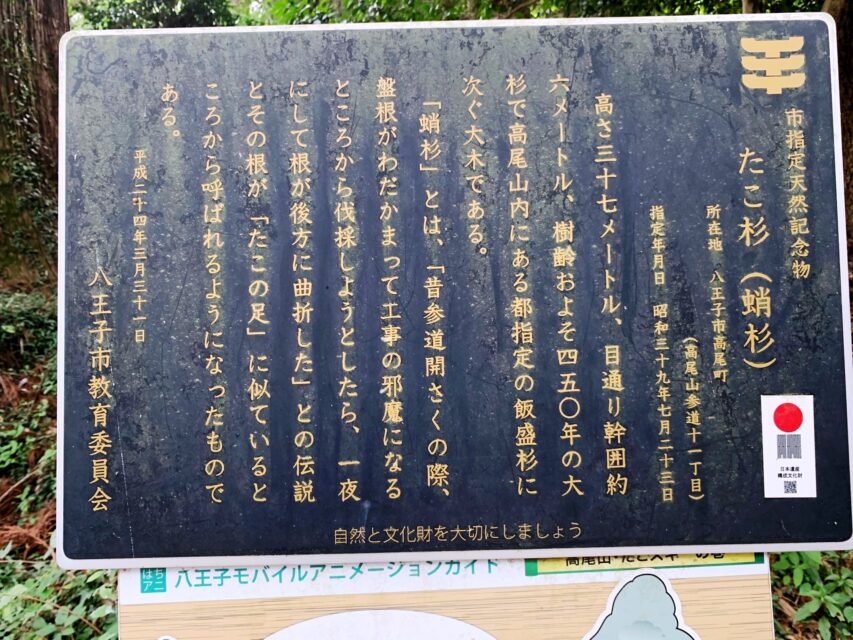 市指定天然記念物
たこ杉(蛸杉)
所在地 八王子市高尾町
(高尾山参道十一丁目)
指定年月日 昭和三十九年七月二十三日
高さ三十七メートル、目通り幹囲約
六メートル、樹齢およそ四五〇年の大
杉で高尾山内にある都指定の飯盛杉に
次ぐ大木である。
「蛸杉」とは、「昔参道開さくの際、
盤根がわだかまって工事の邪魔になる
ところから伐採しようとしたら、一夜
にして根が後方に曲折した」との伝説
とその根が「たこの足」に似ていると
ころから呼ばれるようになったもので
ある。
平成二十四年三月三十一日
八王子市教育委員会
日本遺産
構成文化財
自然と文化財を大切にしましょう
はち
アニ
八王子モバイルアニメーションガイド